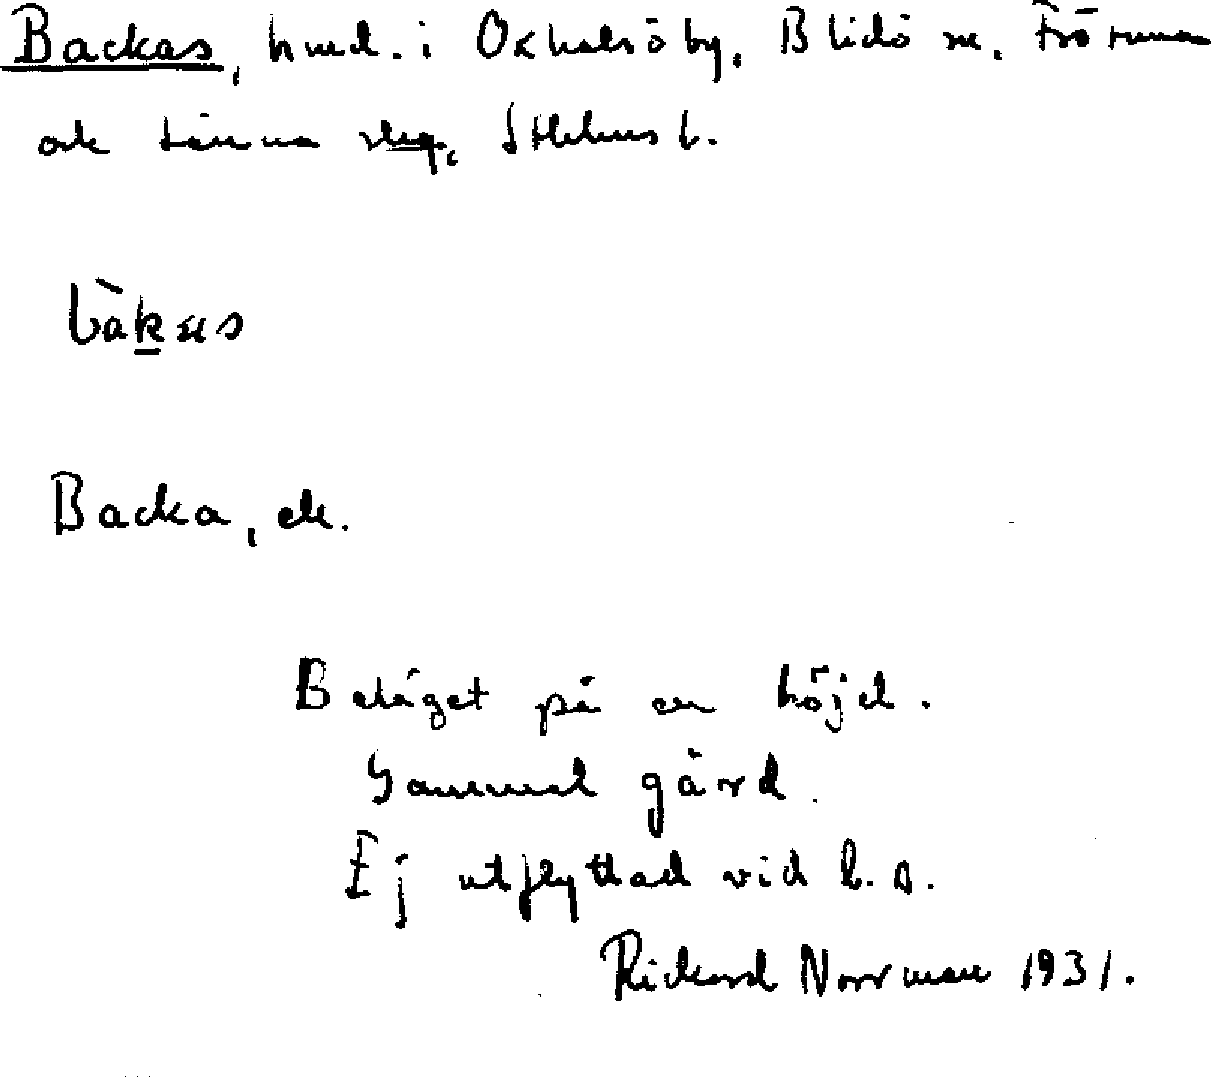 Backas, hmd. i Oxhalsö by, Blidö sn, Frötuna
och Länna slg, Sthlms l.
bàkas
Backa, ek.
Beläget på en höjd.
Gammal gård.
Ej utflyttad vid l. s.
Rickard Norrman 1931.